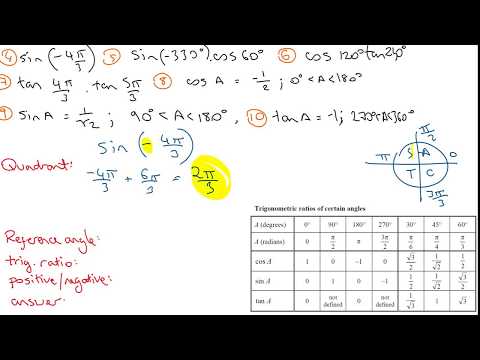 ④ sin(-4π/3) ⑤ sin(-330°).cos60° ⑥ cos120°tan240°
⑦ tan 4π/3 . tan 5π/3 ⑧ cos A = -1/2 ; 0°<A<180°
⑨ sin A = 1/√2 ; 90°<A<180°, ⑩ tan A = -1; 270°<A<360°
sin(-4π/3)
Quadrant:
-4π/3 + 6π/3 = 2π/3
π/2
π S A 0
T C
3π/2
Reference angle:
trig. ratio:
positive/negative:
answer:
Trigonometric ratios of certain angles
A (degrees) 0° 90° 180° 270° 30° 45° 60°
A (radians) 0 π/2 π 3π/2 π/6 π/4 π/3
cos A 1 0 −1 0 √3/2 1/√2 1/2
sin A 0 1 0 −1 1/2 1/√2 √3/2
tan A 0 not defined 0 not defined 1/√3 1 √3